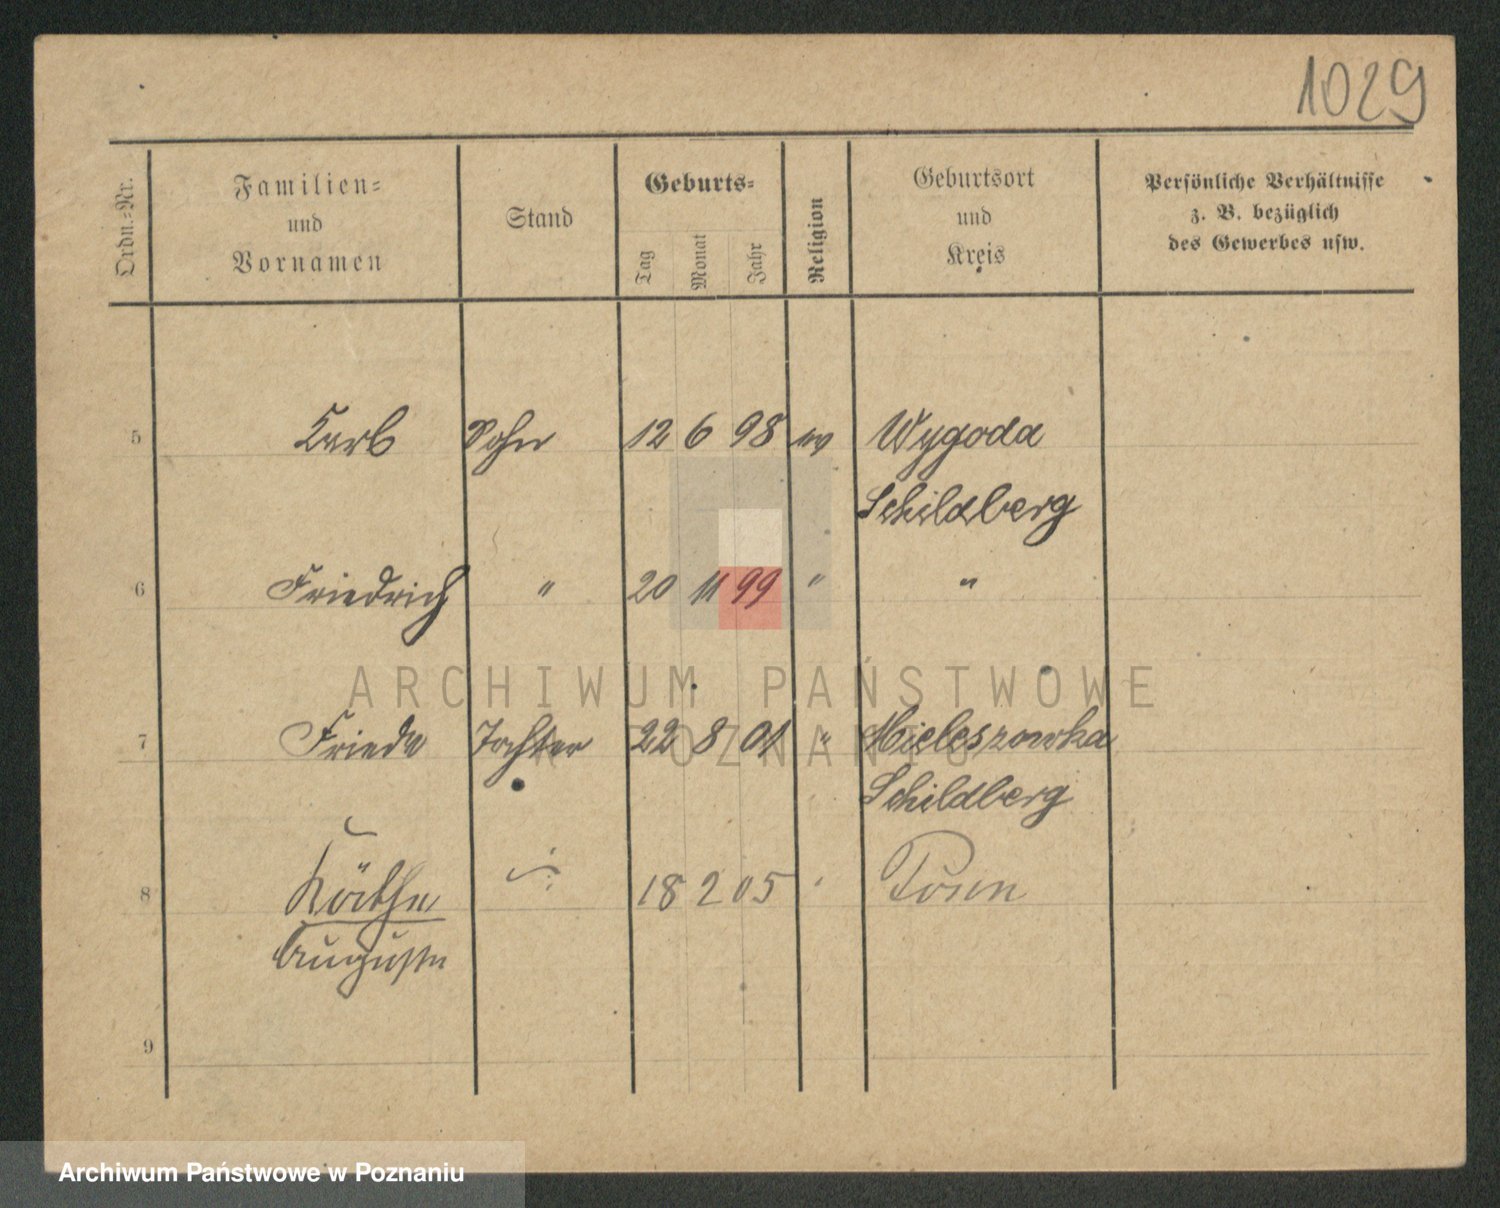 1029
Ordn.-Nr.
Familien-
und
Vornamen
Stand
Geburts-
Tag
Monat
Jahr
Religion
Geburtsort
und
Kreis
Persönliche Verhältnisse
z. B. bezüglich
des Gewerbes usw.
5 Karl Sohn 12 6 98 ev Wygoda
Schildberg
6 Friedrich " 20 11 99 " "
ARCHIWUM PAŃSTWOWE
W POZNANIU
7 Frieda Tochter 22 8 01 " Mieleszowka
Schildberg
8 Käthe 18 2 05 " Posen
Auguste
9
Archiwum Państwowe w Poznaniu